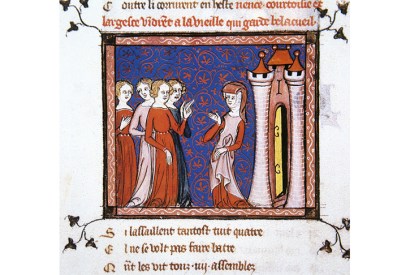 outre li couurent en heste
nence courtoisie et
largesce vidrēt a la vieille qui garde bel acueil.
Si lassaillent tantost tuit quatre
El ne se volt pas faire batre
Qnt les vit touz .iiij. assemblez